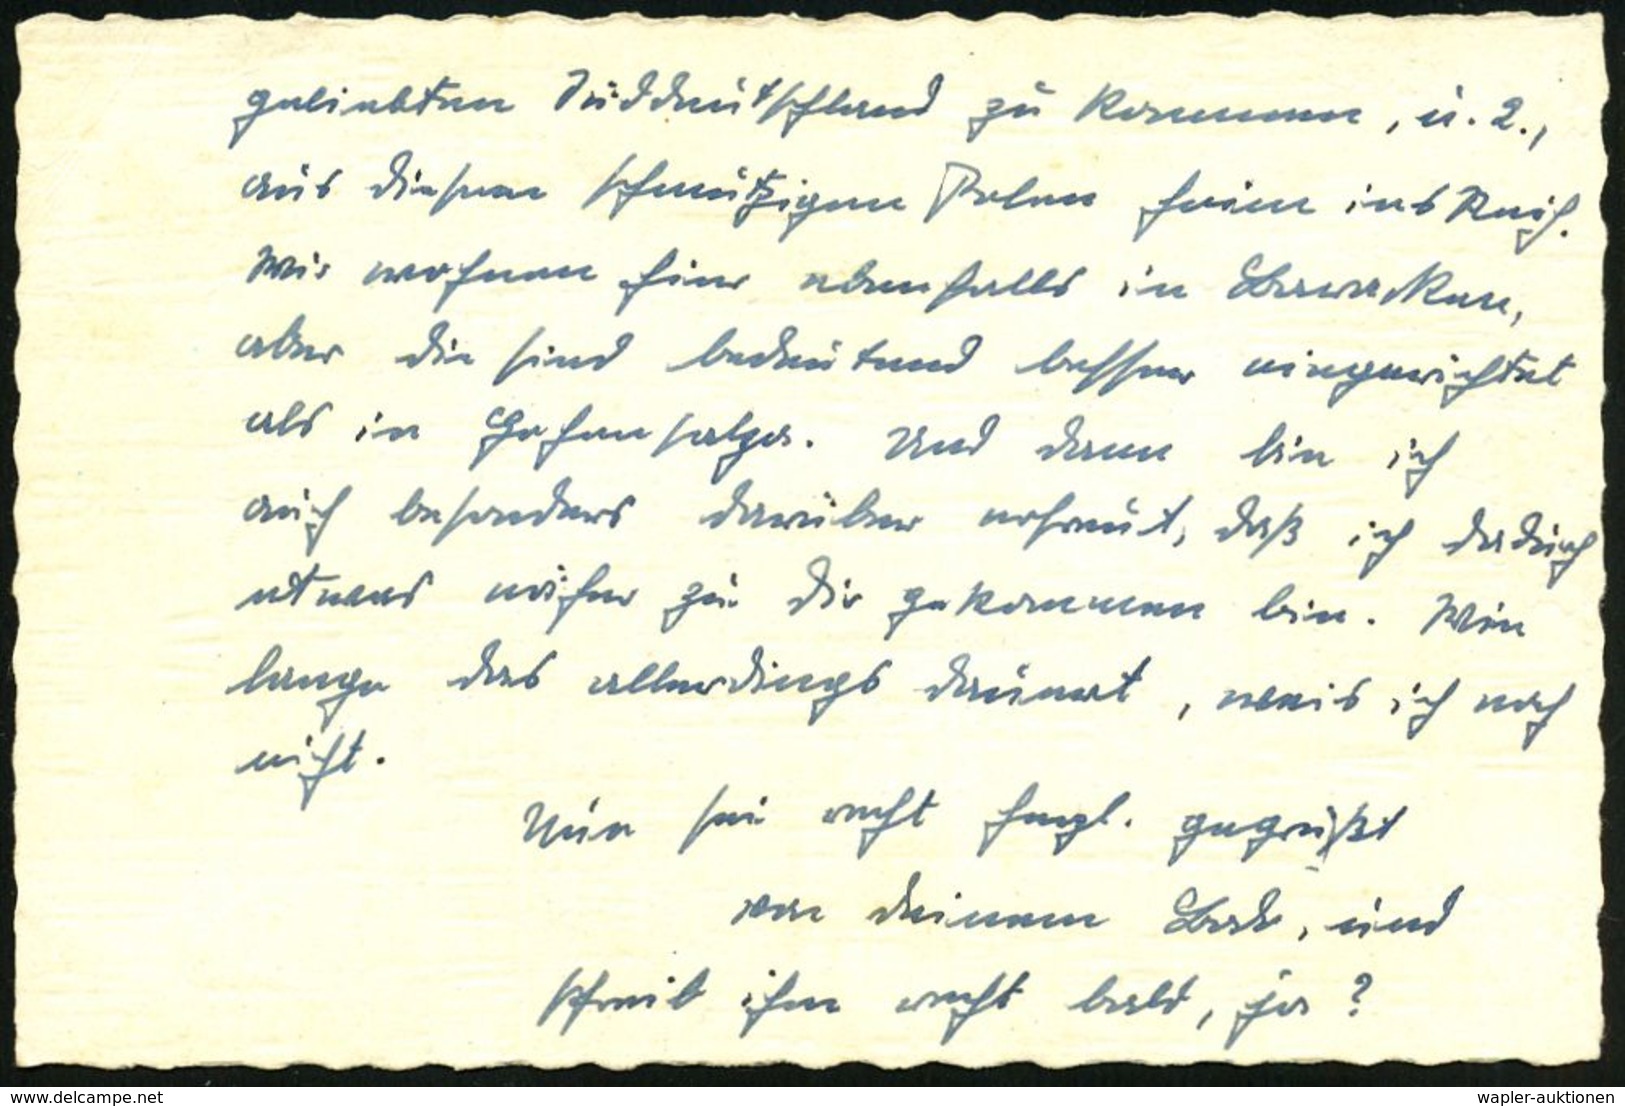 geliebten Süddeutschland zu kommen, u. 2.,
aus diesem schmutzigen Polen heim ins Reich.
Wir wohnen hier ebenfalls in Baracken,
aber die sind bedeutend besser eingerichtet
als in Hohensalza. Und dann bin ich
auch besonders darüber erfreut, daß ich dadurch
etwas näher zu Dir gekommen bin. Wie
lange das allerdings dauert, weis ich noch
nicht.
Nun sei recht herzl. gegrüßt
von deinem und
schreib ihm recht bald, ja?
delcampe.net
wapler-auktionen